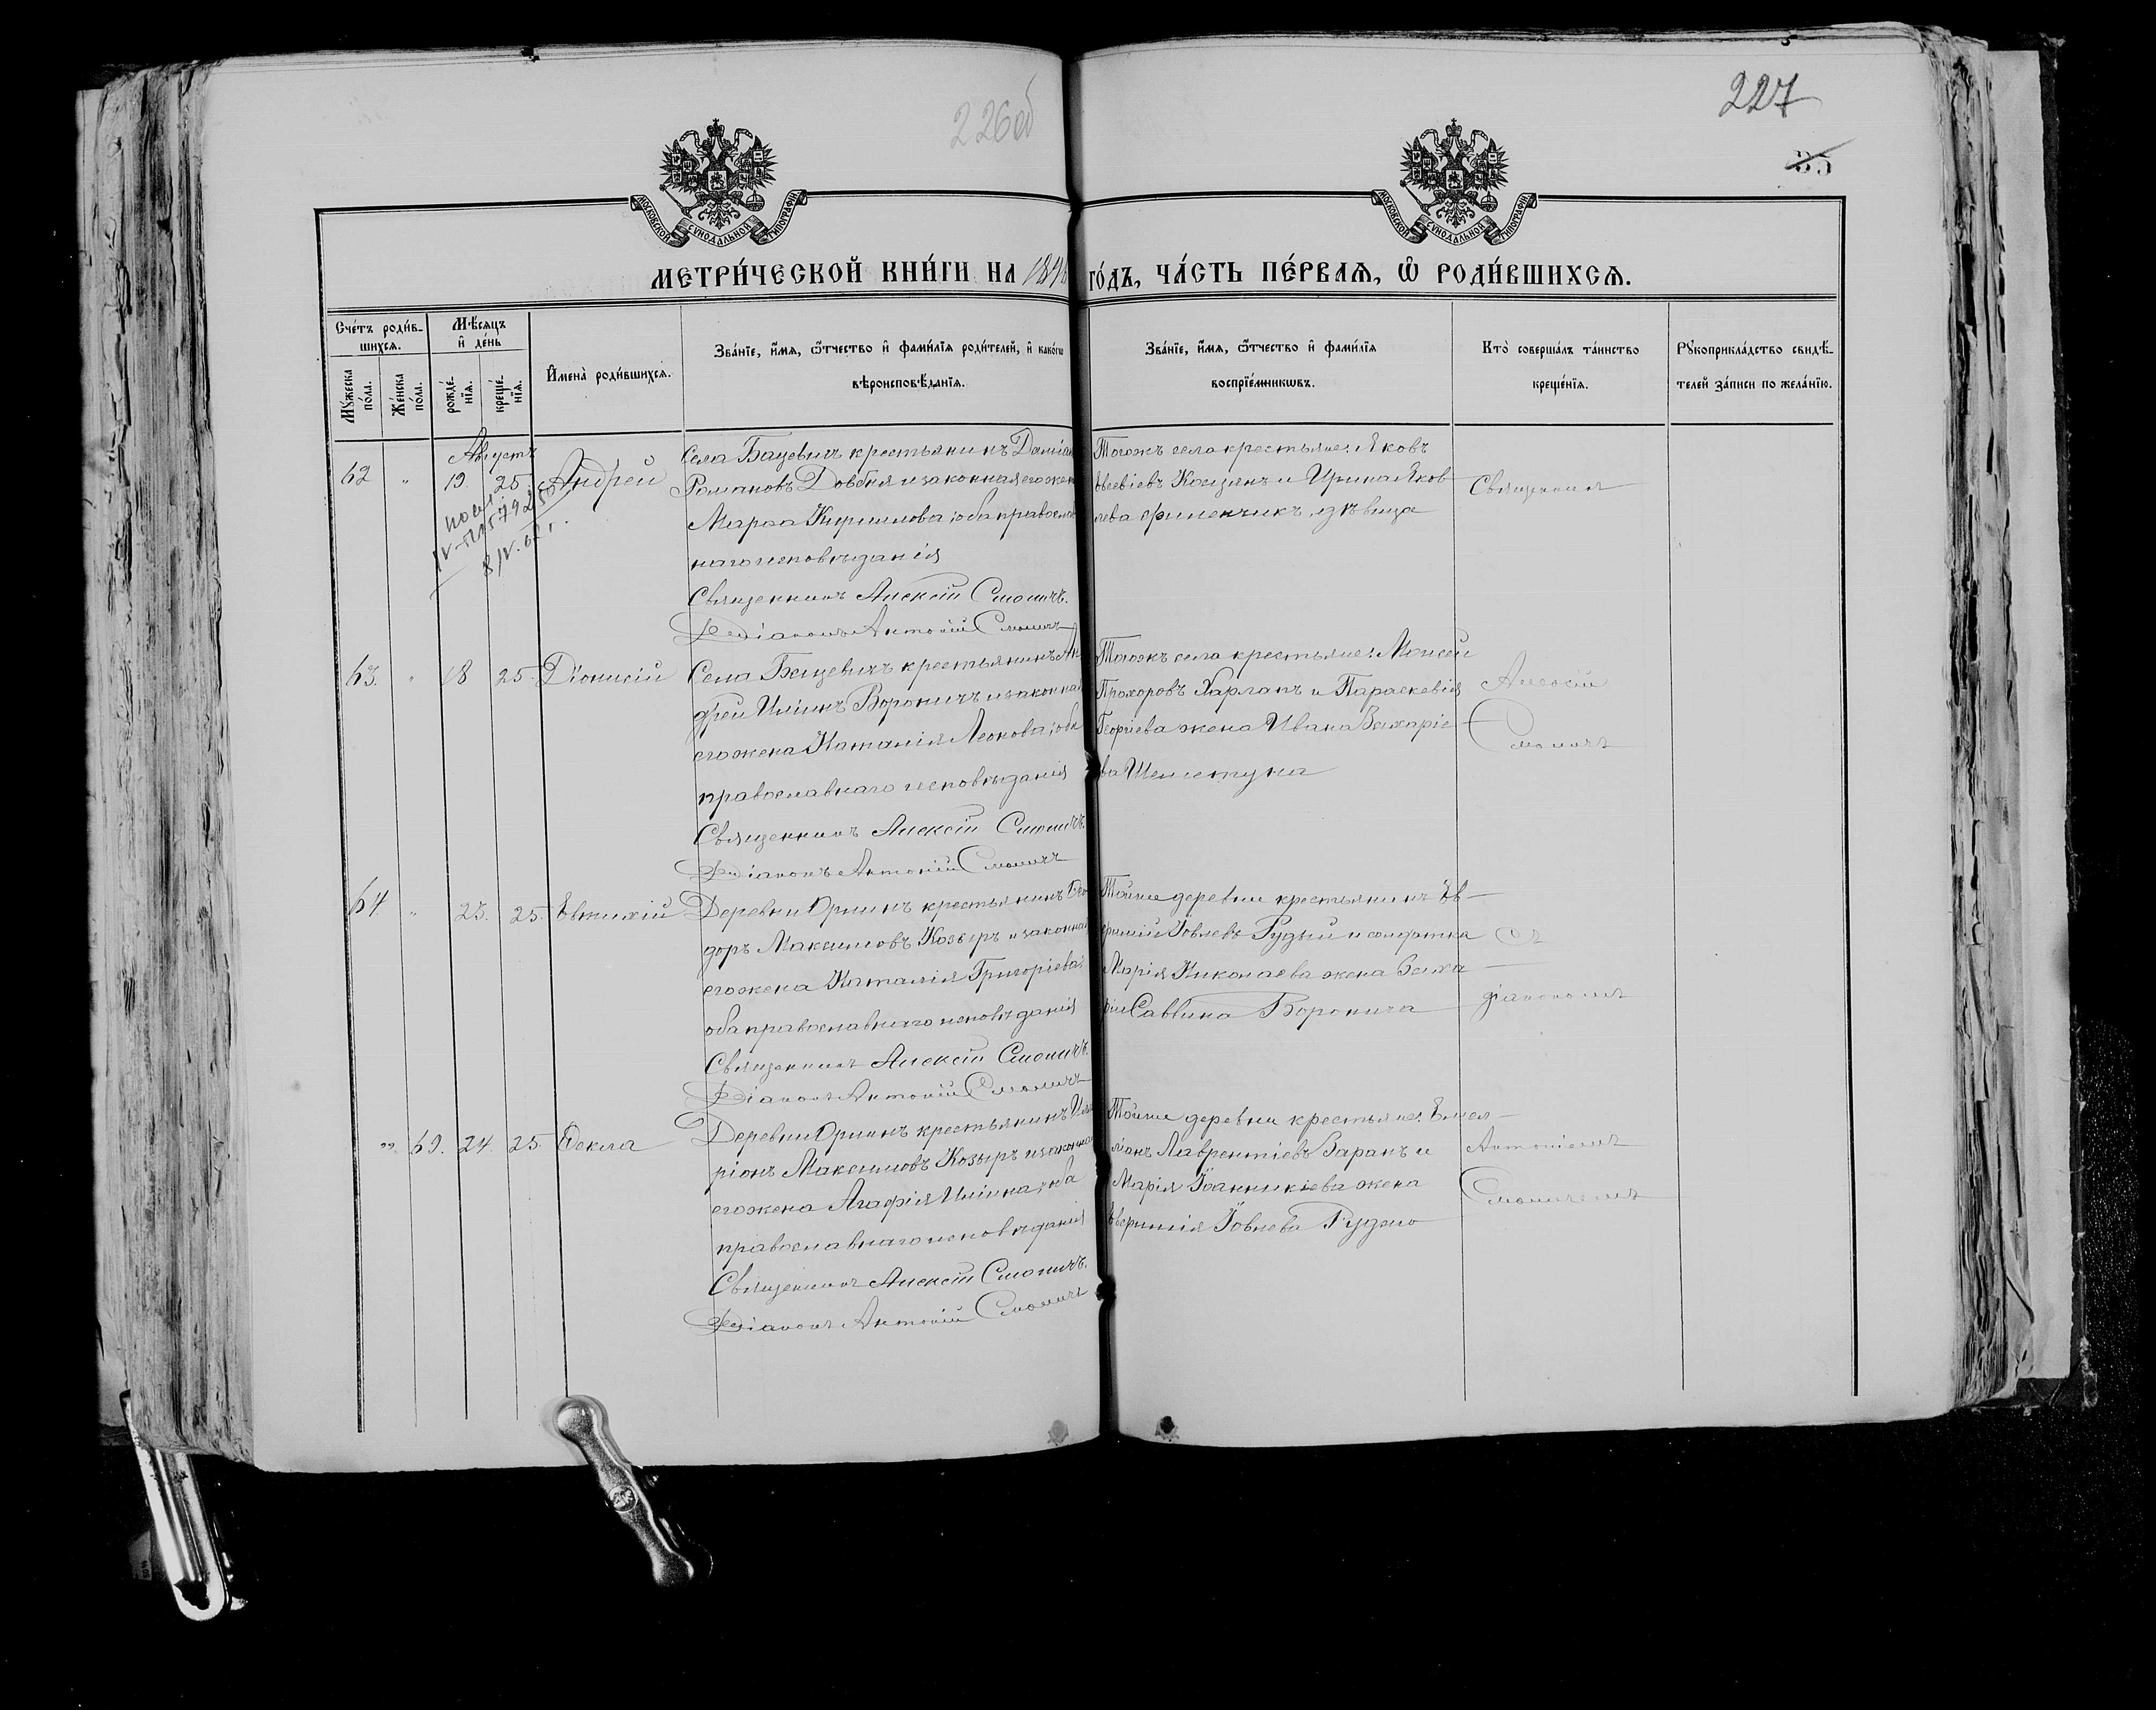 226об
227
35
МОСКОВСКОЙ СѴНОДАЛЬНОЙ ТИПОГРАФІИ
МОСКОВСКОЙ СѴНОДАЛЬНОЙ ТИПОГРАФІИ
МЕТРИ́ЧЕСКОЙ КНИ́ГИ НА 189 ГО́ДЪ, ЧА́СТЬ ПЕ́РВАѦ, Ѡ҆ РОДИ́ВШИХСѦ.
Сче́тъ роди́в-
шихсѧ.
Мꙋ́жеска по́ла.
Же́нска по́ла.
Мѣ́сѧцъ
и҆ де́нь
рожде́-нїѧ.
креще́-нїѧ.
И҆мена̀ роди́вшихсѧ.
Зва́нїе, и҆́мѧ, ѻ҆́тчество и҆ фами́лїѧ роди́телей, и҆ како́гѡ
вѣроисповѣ́данїѧ.
Зва́нїе, и҆́мѧ, ѻ҆́тчество и҆ фами́лїѧ
воспрїе́мникѡвъ.
Кто̀ соверша́лъ та́инство
креще́нїѧ.
Рꙋкоприкла́дство свидѣ́-
телей за́писи по жела́нїю.
Августъ
62 " 19. 25. Андрей
Села Бацевичъ крестьянинъ Даміан
Романовъ Довбня и законная его жен
Марѳа Кирилова; оба православ
наго исповѣданія
Священникъ Алексій Смоличъ.
Діаконъ Антоній Смоличъ
Тогожъ села крестьяне: Яковъ
Евсевіевъ и Ирина Яков
лева Филенчикъ, дѣвица
Священникъ
63. " 18 25. Діонисій
Села Бацевичъ крестьянинъ Ан
дрей Иліинъ Вороничъ и законная
его жена Наталія Леонова; оба
православнаго исповѣданія
Священникъ Алексій Смоличъ.
Діаконъ Антоній Смоличъ
Тогожъ села крестьяне: Моисей
Прохоровъ Харланъ и Параскевія
Георгіева жена Ивана Захаріе-
ва Шелетуна
Алексій
Смоличъ
64. " 23. 25. Евтихій
Деревни Орлинъ крестьянинъ Ѳео
доръ Максимовъ Козыръ и законная
его жена Наталія Григоріева;
оба православнаго исповѣданія
Священникъ Алексій Смоличъ.
Діаконъ Антоній Смоличъ
Тойже деревни крестьянинъ Ев-
фимій Іовлевъ Рудый и солдатка
Марія Николаева жена Заха-
рія Саввина Воронича
съ
діакономъ
" 69. 24. 25. Ѳекла
Деревни Орлинъ крестьянинъ Ила
ріонъ Максимовъ Козыръ и законная
его жена Агафія Иліина; оба
православнаго исповѣданія
Священникъ Алексій Смоличъ.
Діаконъ Антоній Смоличъ
Тойже деревни крестьяне: Емел-
ьянъ Лаврентіевъ Баранъ и
Марія Іоанникіева жена
Евфимія Іовлева Рудого
Антоніемъ
Смоличемъ